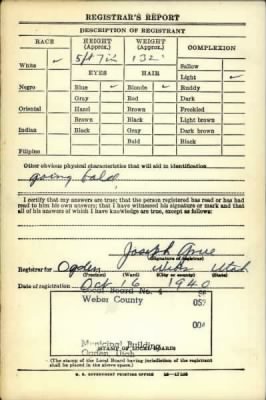 REGISTRAR'S REPORT
DESCRIPTION OF REGISTRANT
RACE
HEIGHT (Approx.)
WEIGHT (Approx.)
COMPLEXION
White ✓
5 ft 7 in
132
Sallow
EYES
HAIR
Light ✓
Negro
Blue ✓
Blonde ✓
Ruddy
Gray
Red
Dark
Oriental
Hazel
Brown
Freckled
Brown
Black
Light brown
Indian
Black
Gray
Dark brown
Bald
Black
Filipino
Other obvious physical characteristics that will aid in identification
going bald
I certify that my answers are true; that the person registered has read or has had read to him his own answers; that I have witnessed his signature or mark and that all of his answers of which I have knowledge are true, except as follows:
Joseph
(Signature of registrar)
Registrar for Ogden Utah
(Precinct) (Ward) (City or county) (State)
Date of registration Oct 16 1940
Local Board No.
Weber County
Municipal Building
STAMP OF LOCAL BOARD
Ogden, Utah
(The stamp of the Local Board having jurisdiction of the registrant shall be placed in the above space.)
U. S. GOVERNMENT PRINTING OFFICE